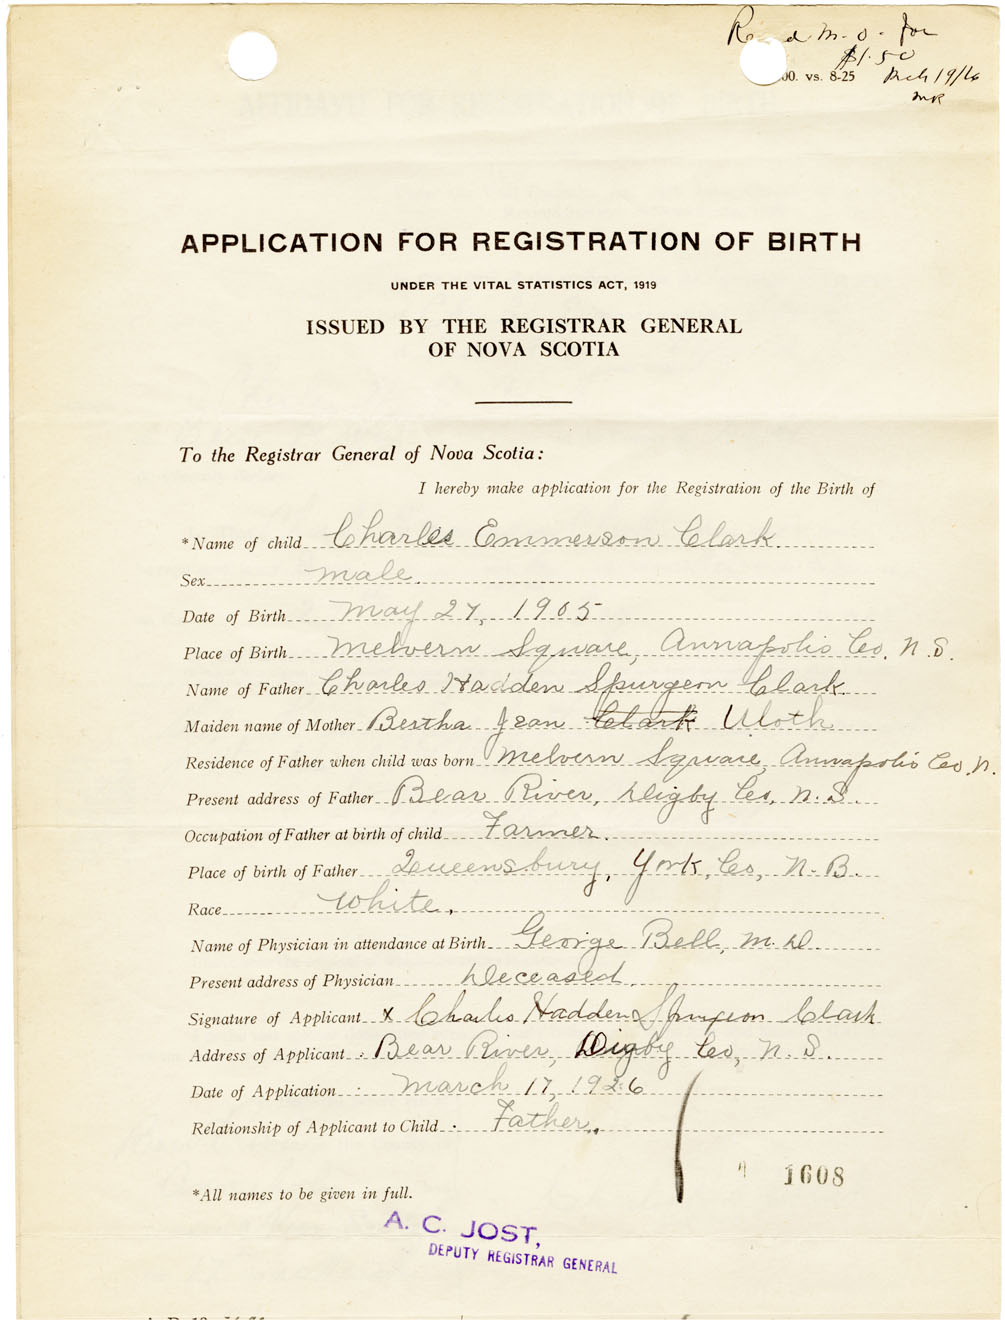 Rec'd M.O. for
$1.50
00. vs. 8-25 Mch 19/26
MR
APPLICATION FOR REGISTRATION OF BIRTH
UNDER THE VITAL STATISTICS ACT, 1919
ISSUED BY THE REGISTRAR GENERAL
OF NOVA SCOTIA
To the Registrar General of Nova Scotia:
I hereby make application for the Registration of the Birth of
*Name of child Charles Emmerson Clark
Sex male.
Date of Birth May 27, 1905
Place of Birth Melvern Square, Annapolis Co. N.S.
Name of Father Charles Hadden Spurgeon Clark
Maiden name of Mother Bertha Jean Clark Uloth
Residence of Father when child was born Melvern Square, Annapolis Co. N.
Present address of Father Bear River, Digby Co, N.S.
Occupation of Father at birth of child Farmer.
Place of birth of Father Queensbury, York, Co, N.B.
Race White.
Name of Physician in attendance at Birth George Bell, M.D.
Present address of Physician Deceased.
Signature of Applicant x Charles Hadden Spurgeon Clark
Address of Applicant : Bear River, Digby Co, N.S.
Date of Application : March 17, 1926
Relationship of Applicant to Child . Father.
1608
*All names to be given in full.
A. C. JOST,
DEPUTY REGISTRAR GENERAL